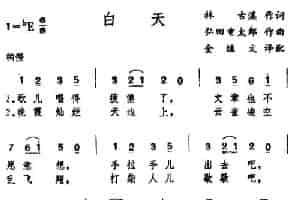 白天
1=♭E
林古溪 作词
弘田重太郎 作曲
金继文 译配
稍慢
1 2 3 5 3 2 1 0 3 2 3 5
1.歌儿唱得疲倦了， 文章也不
2.晚霞灿烂天边上， 云雀凌空
7 6 1 5 0 1 2 3 5 3 2 1 0
愿意想， 手拉手儿出去吧，
乱飞翔， 打柴人儿歇歇吧，